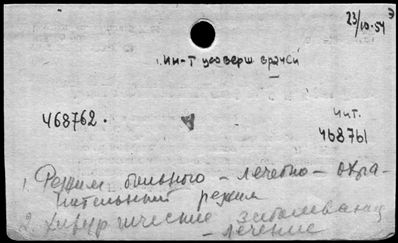 23/10-54 Э
Ин-т усоверш врачей
468762.
Чит.
468761
1 Режим больного - лечебно - охра-
нительный режим
2. Хирургические заболевания
- лечение